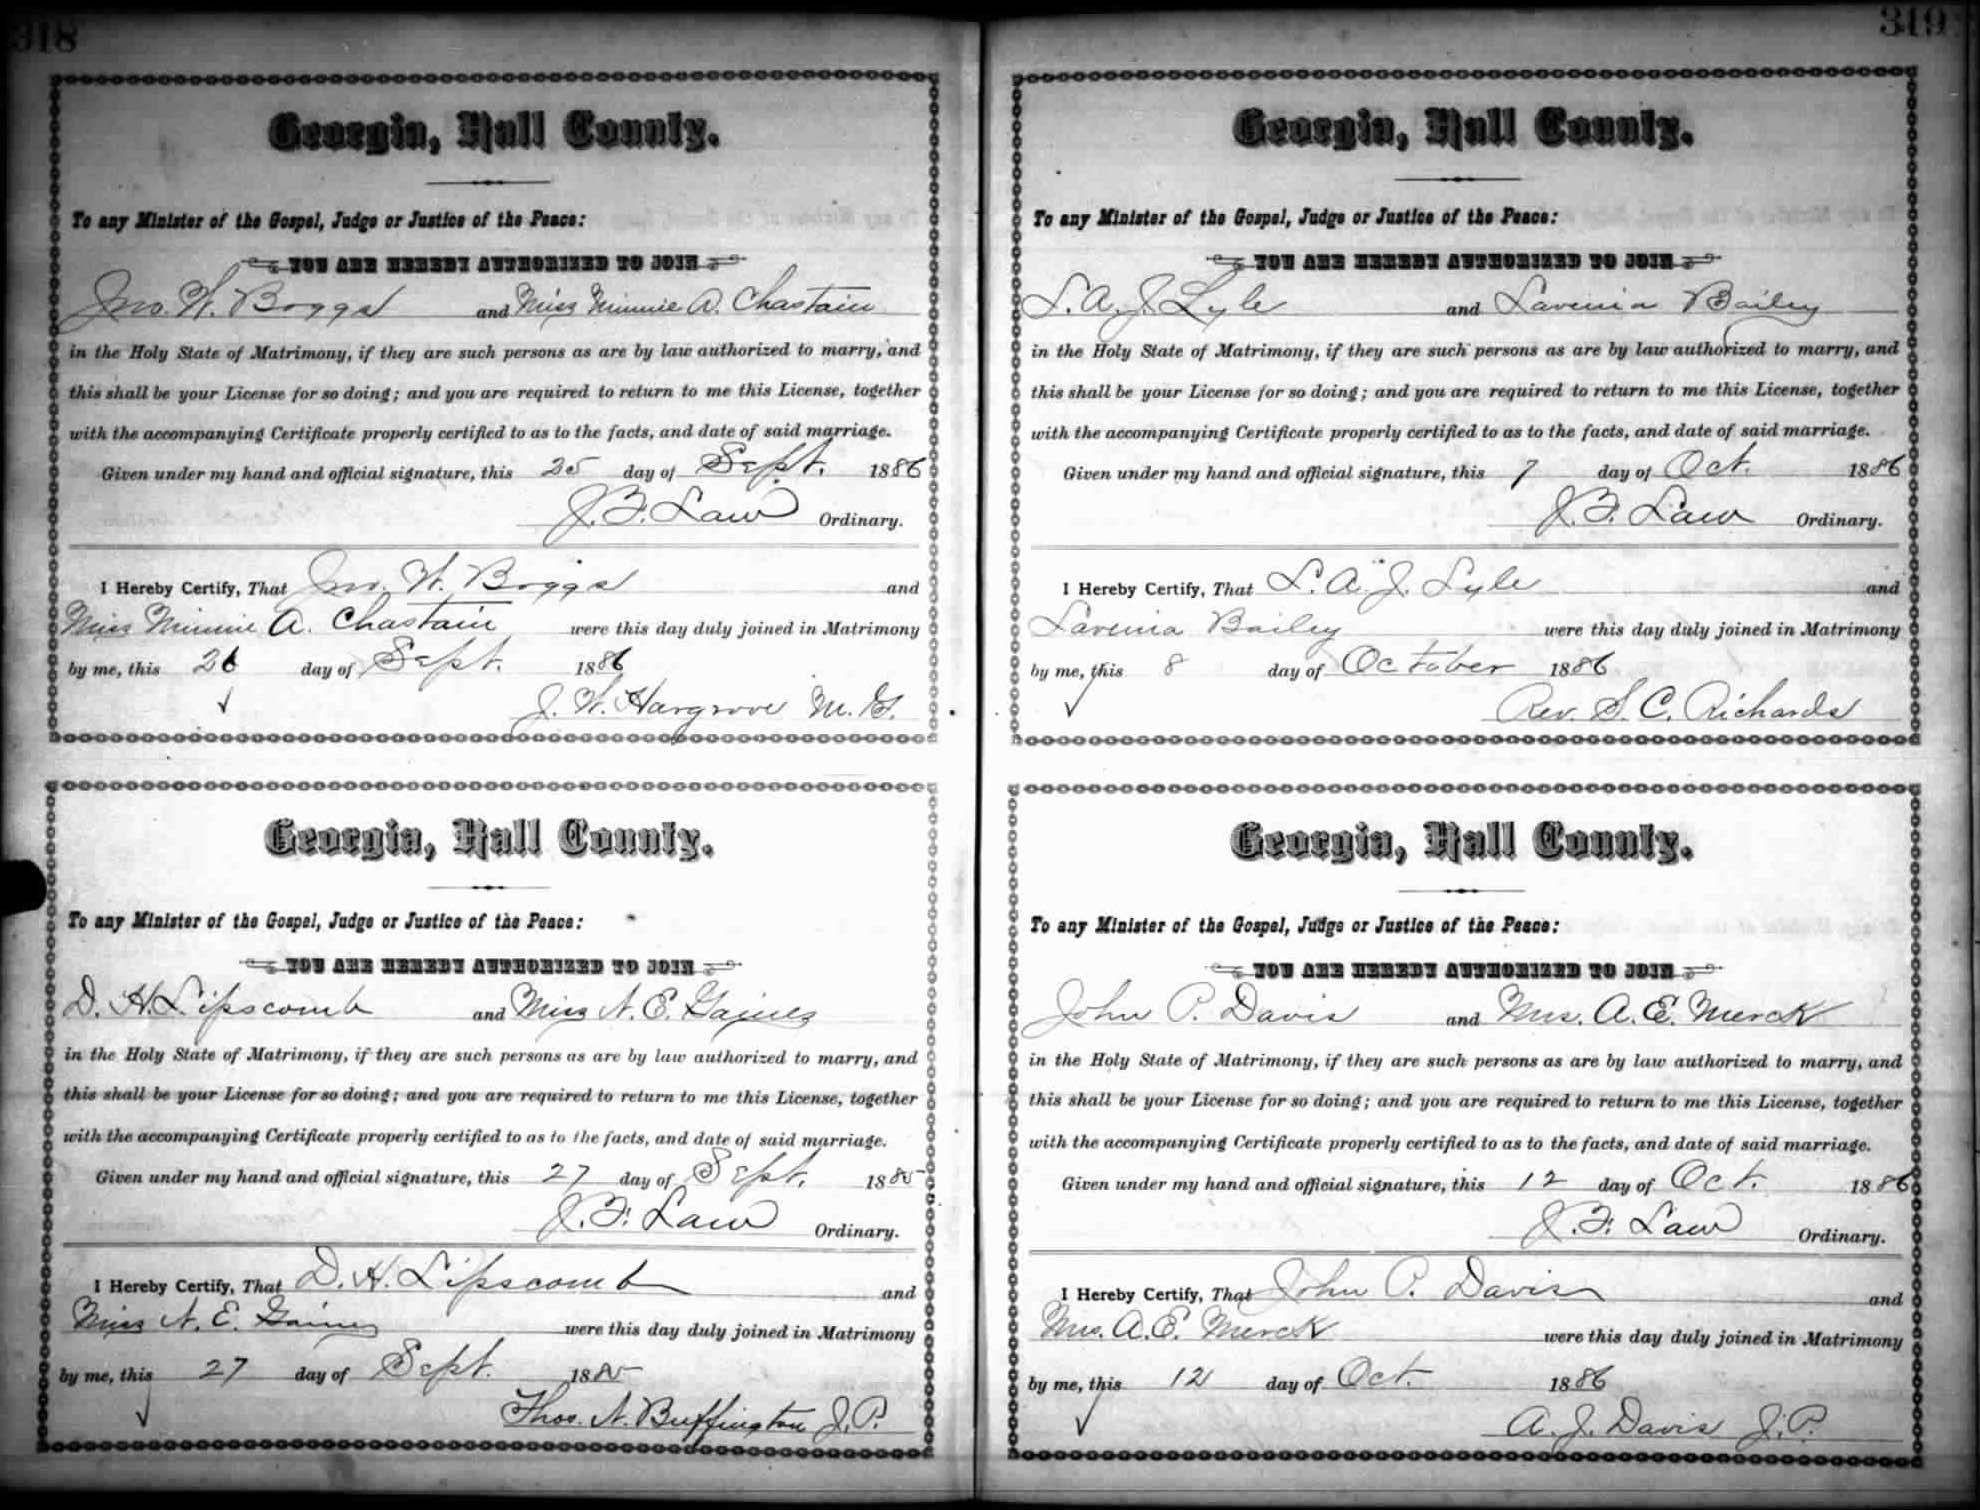 318
Georgia, Hall County.
To any Minister of the Gospel, Judge or Justice of the Peace:
YOU ARE HEREBY AUTHORIZED TO JOIN
Jno. W. Boggs and Miss Minnie A. Chastain
in the Holy State of Matrimony, if they are such persons as are by law authorized to marry, and
this shall be your License for so doing; and you are required to return to me this License, together
with the accompanying Certificate properly certified to as to the facts, and date of said marriage.
Given under my hand and official signature, this 25 day of Sept. 1886
J. F. Law Ordinary.
I Hereby Certify, That Jno. W. Boggs and
Miss Minnie A. Chastain were this day duly joined in Matrimony
by me, this 26 day of Sept. 1886
J. W. Hargrove M. G.
Georgia, Hall County.
To any Minister of the Gospel, Judge or Justice of the Peace:
YOU ARE HEREBY AUTHORIZED TO JOIN
D. H. Lipscomb and Miss N. E. Gaines
in the Holy State of Matrimony, if they are such persons as are by law authorized to marry, and
this shall be your License for so doing; and you are required to return to me this License, together
with the accompanying Certificate properly certified to as to the facts, and date of said marriage.
Given under my hand and official signature, this 27 day of Sept. 1885
J. F. Law Ordinary.
I Hereby Certify, That D. H. Lipscomb and
Miss N. E. Gaines were this day duly joined in Matrimony
by me, this 27 day of Sept. 1885
Thos. N. Buffington J. P.
319
Georgia, Hall County.
To any Minister of the Gospel, Judge or Justice of the Peace:
YOU ARE HEREBY AUTHORIZED TO JOIN
L. A. J. Lyle and Lavenia Bailey
in the Holy State of Matrimony, if they are such persons as are by law authorized to marry, and
this shall be your License for so doing; and you are required to return to me this License, together
with the accompanying Certificate properly certified to as to the facts, and date of said marriage.
Given under my hand and official signature, this 7 day of Oct. 1886
J. F. Law Ordinary.
I Hereby Certify, That L. A. J. Lyle and
Lavenia Bailey were this day duly joined in Matrimony
by me, this 8 day of October 1886
Rev. S. C. Richards
Georgia, Hall County.
To any Minister of the Gospel, Judge or Justice of the Peace:
YOU ARE HEREBY AUTHORIZED TO JOIN
John P. Davis and Mrs. A. E. Merck
in the Holy State of Matrimony, if they are such persons as are by law authorized to marry, and
this shall be your License for so doing; and you are required to return to me this License, together
with the accompanying Certificate properly certified to as to the facts, and date of said marriage.
Given under my hand and official signature, this 12 day of Oct. 1886
J. F. Law Ordinary.
I Hereby Certify, That John P. Davis and
Mrs. A. E. Merck were this day duly joined in Matrimony
by me, this 12 day of Oct. 1886
A. J. Davis J. P.